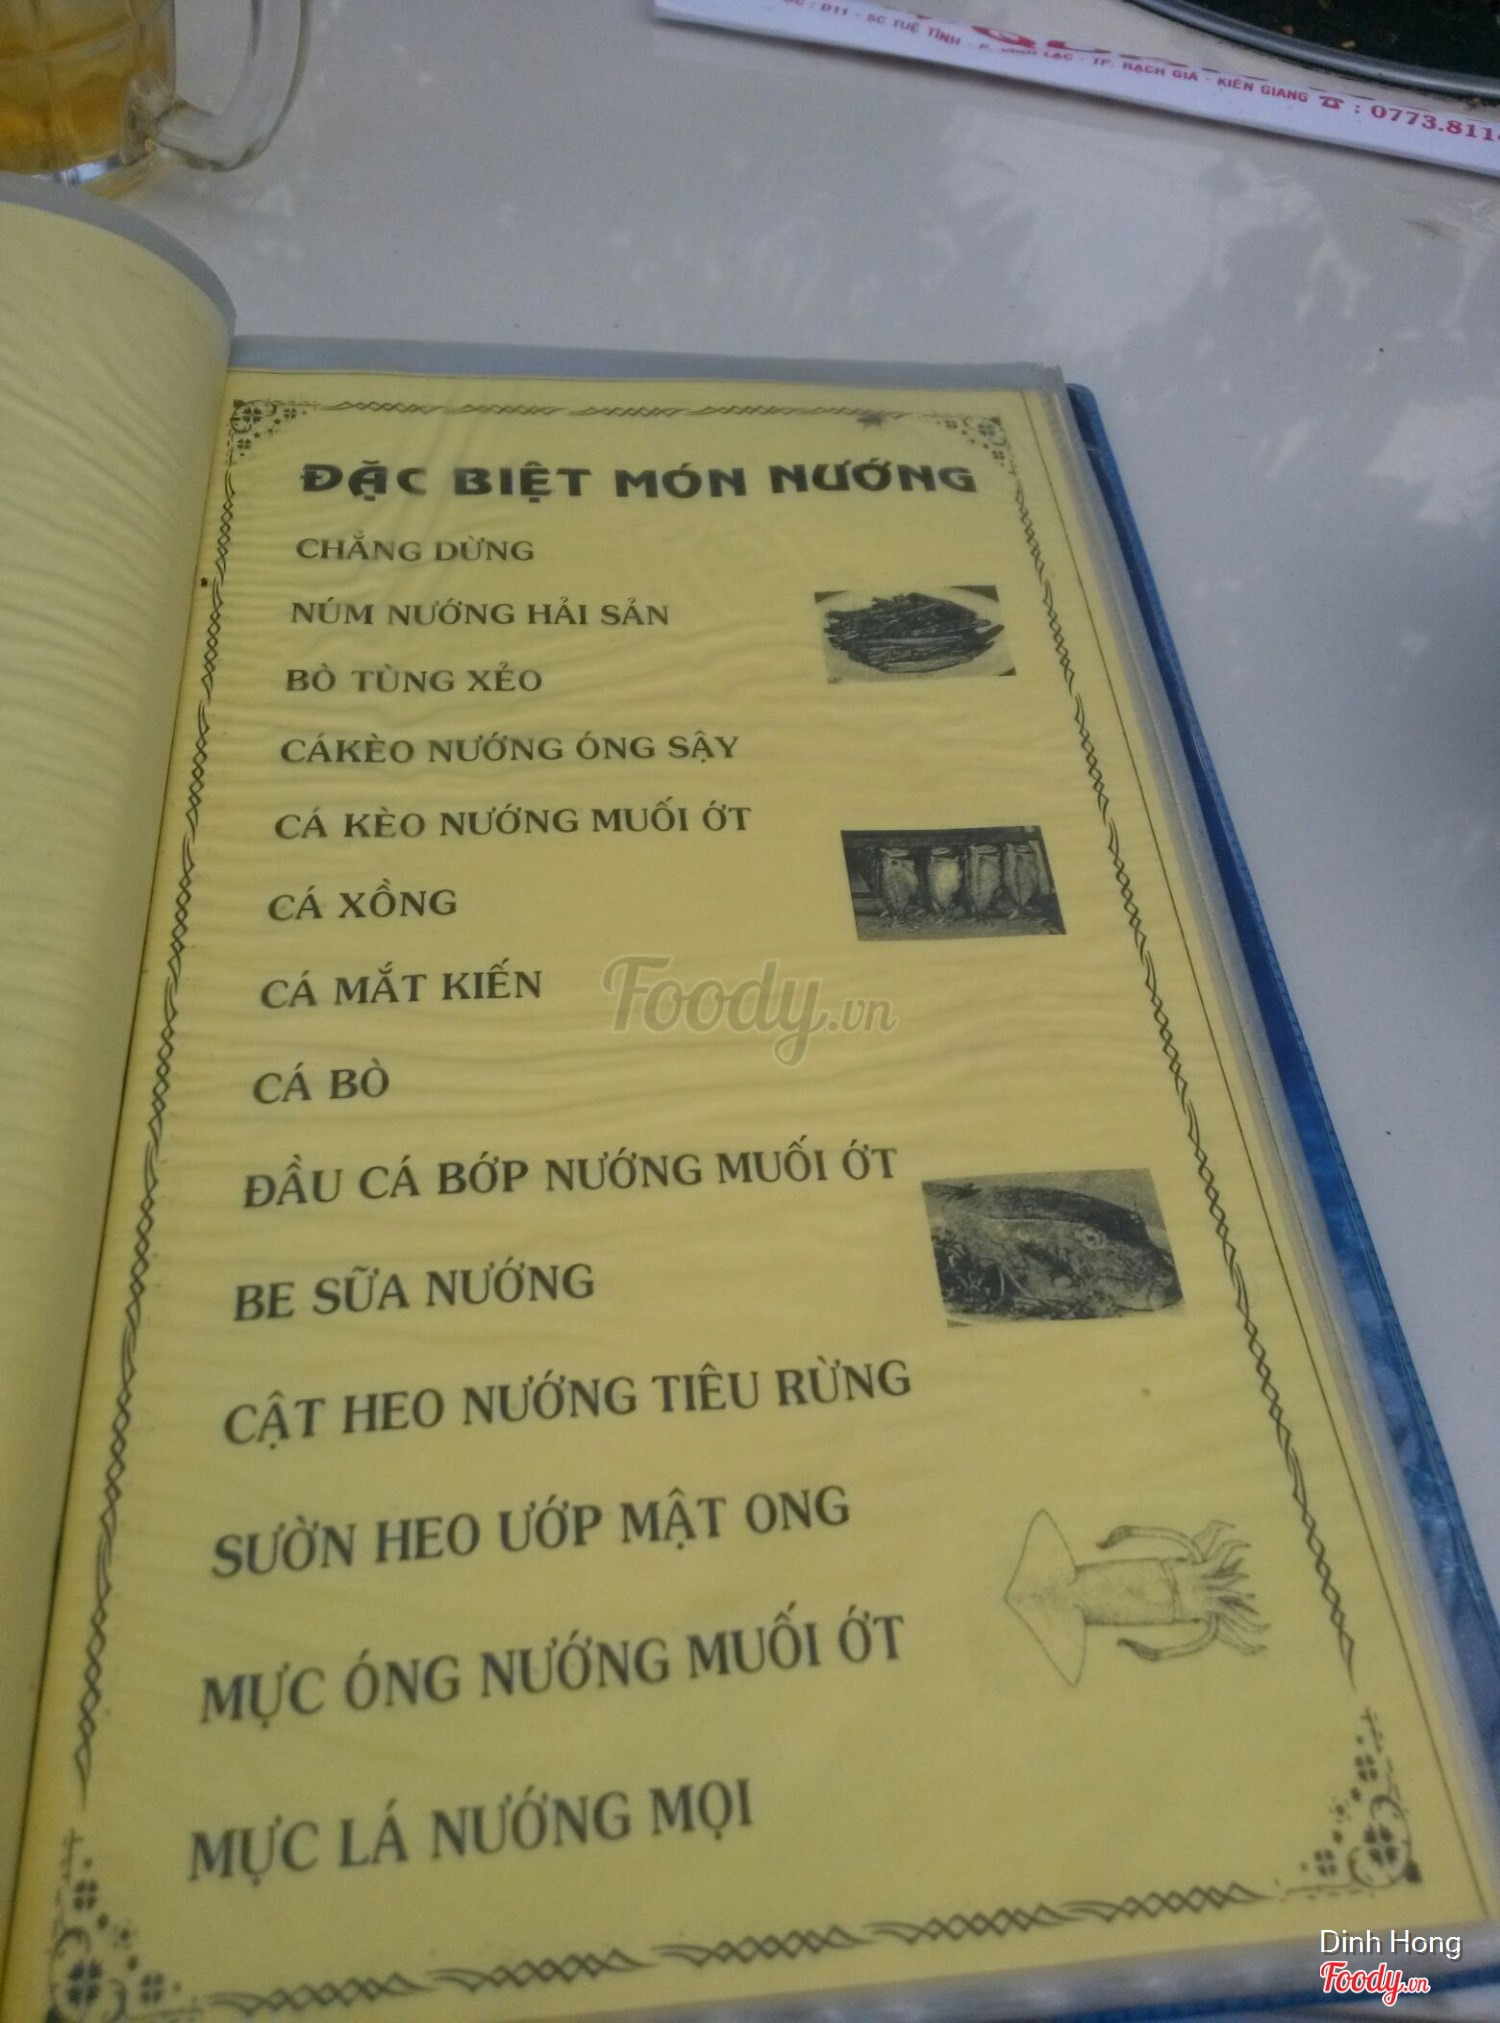 011 - 5C TUỆ TĨNH - P. VĨNH LẠC - TP. RẠCH GIÁ - KIÊN GIANG ☎ : 0773.811
ĐẶC BIỆT MÓN NƯỚNG
CHẲNG DỪNG
NÚM NƯỚNG HẢI SẢN
BÒ TÙNG XẺO
CÁKÈO NƯỚNG ÓNG SẬY
CÁ KÈO NƯỚNG MUỐI ỚT
CÁ XỒNG
CÁ MẮT KIẾN
Foody.vn
CÁ BÒ
ĐẦU CÁ BỚP NƯỚNG MUỐI ỚT
BE SỮA NƯỚNG
CẬT HEO NƯỚNG TIÊU RỪNG
SƯỜN HEO ƯỚP MẬT ONG
MỰC ÓNG NƯỚNG MUỐI ỚT
MỰC LÁ NƯỚNG MỌI
Dinh Hong
Foody.vn